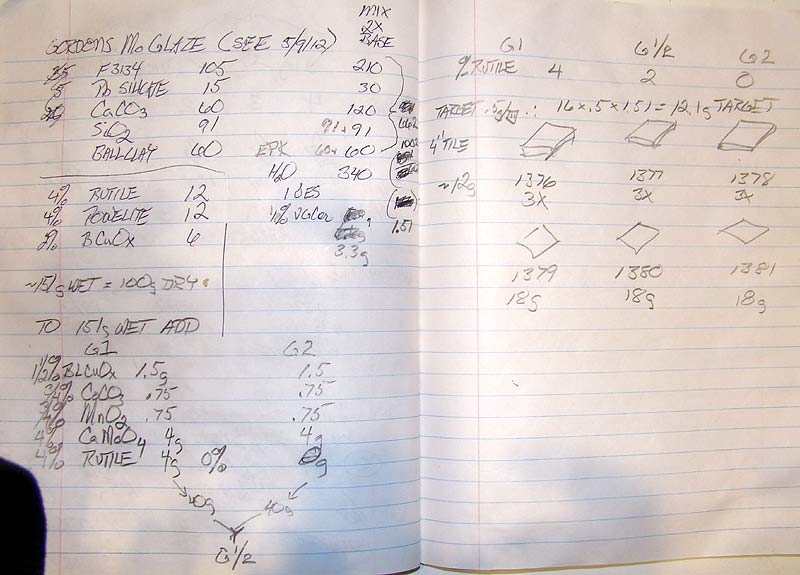 MIX
2X
GORDENS Mo GLAZE (SEE 5/9/12) BASE
35 F3134 105 210
5 Pb SILICATE 15 30
20 CaCO3 60 120
SiO2 91 91+91
BALLCLAY 60 EPK 60+60
H2O 340
4% RUTILE 12
4% POWELITE 12 1% VGLOW
2% BCuOx 6
3.3g
1.51
~151g WET = 100g DRY
TO 151g WET ADD
G1 G2
1 1/2% BLCuOx 1.5g 1.5
3/4% CoCO3 .75 .75
MnO2 .75 .75
4% CaMoO4 4g 4g
4% RUTILE 4g 0% 0g
40g 40g
G1/2
G1 G1/2 G2
% RUTILE 4 2 0
TARGET .5g/ ∴ 16 x .5 x 1.51 = 12.1g TARGET
4" TILE
~12g 1376 1377 1378
3X 3X 3X
1379 1380 1381
18g 18g 18g